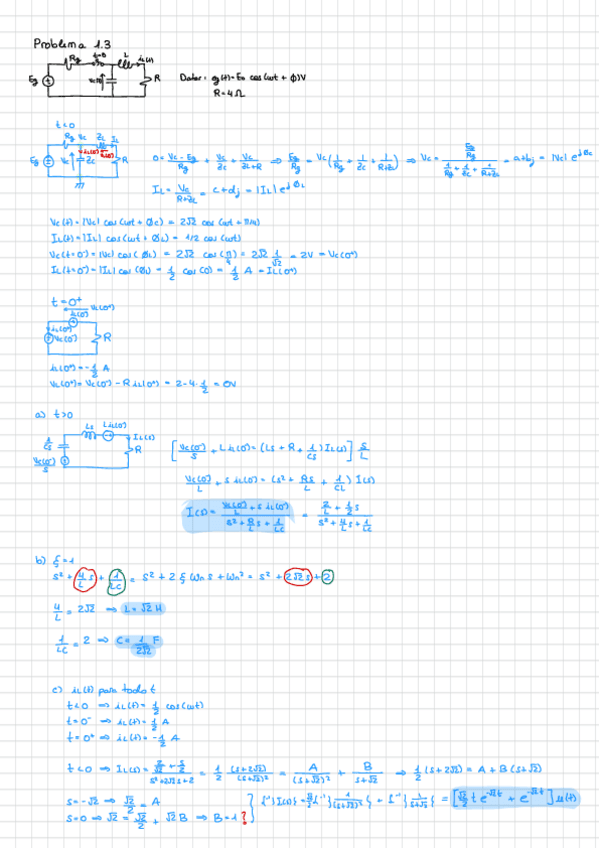 Problema 1.3
Rg t=0 L iL(t)
Eg R
Datos: eg(t) = Eo cos(ωt + ϕ) V
R = 4 Ω
t<0
Rg Vc ZL IL
Eg Vc Zc R
0 = (Vc - Eg)/Rg + Vc/Zc + Vc/(ZL+R) ⇒ Eg/Rg = Vc(1/Rg + 1/Zc + 1/(R+ZL)) ⇒ Vc = (Eg/Rg)/(1/Rg + 1/Zc + 1/(R+ZL)) = a+bj = |Vc| e^jϕc
IL = Vc/(R+ZL) = c+dj = |IL| e^jϕL
Vc(t) = |Vc| cos(ωt + ϕc) = 2√2 cos(ωt + π/4)
IL(t) = |IL| cos(ωt + ϕL) = 1/2 cos(ωt)
Vc(t=0⁻) = |Vc| cos(ϕc) = 2√2 cos(π/4) = 2√2 1/√2 = 2V = Vc(0⁺)
IL(t=0⁻) = |IL| cos(ϕL) = 1/2 cos(0) = 1/2 A = IL(0⁺)
t=0⁺
iL(0⁺) VL(0⁺)
Vc(0⁻) R
iL(0⁺) = -1/2 A
VL(0⁺) = Vc(0⁻) - R iL(0⁺) = 2-4·1/2 = 0V
a) t>0
Ls LiL(0⁻)
1/Cs IL(s)
R
Vc(0⁻)/S
[Vc(0⁻)/S + L iL(0⁻) = (Ls + R + 1/CS) IL(s)] S/L
Vc(0⁻)/L + s iL(0⁻) = (s² + RS/L + 1/CL) I(s)
I(s) = (Vc(0⁻)/L + s iL(0⁻))/(s² + R/L s + 1/LC) = (2/L + 1/2 s)/(s² + 4/L s + 1/LC)
b) ξ=1
s² + 4/L s + 1/LC = s² + 2 ξ ωn s + ωn² = s² + 2√2 s + 2
4/L = 2√2 ⇒ L = √2 H
1/LC = 2 ⇒ C = 1/2√2 F
c) iL(t) para todo t
t<0 ⇒ iL(t) = 1/2 cos(ωt)
t=0⁻ ⇒ iL(t) = 1/2 A
t=0⁺ ⇒ iL(t) = -1/2 A
t<0 ⇒ IL(s) = (2/√2 + s/2)/(s²+2√2s+2) = 1/2 (s+2√2)/(s+√2)² = A/(s+√2)² + B/(s+√2) ⇒ 1/2 (s+2√2) = A + B(s+√2)
s=-√2 ⇒ √2/2 = A
s=0 ⇒ √2 = √2/2 + √2 B ⇒ B=1 ?
L⁻¹{I(s)} = √2/2 L⁻¹{1/(s+√2)²} + L⁻¹{1/(s+√2)} = [√2/2 t e^-√2t + e^-√2t] u(t)